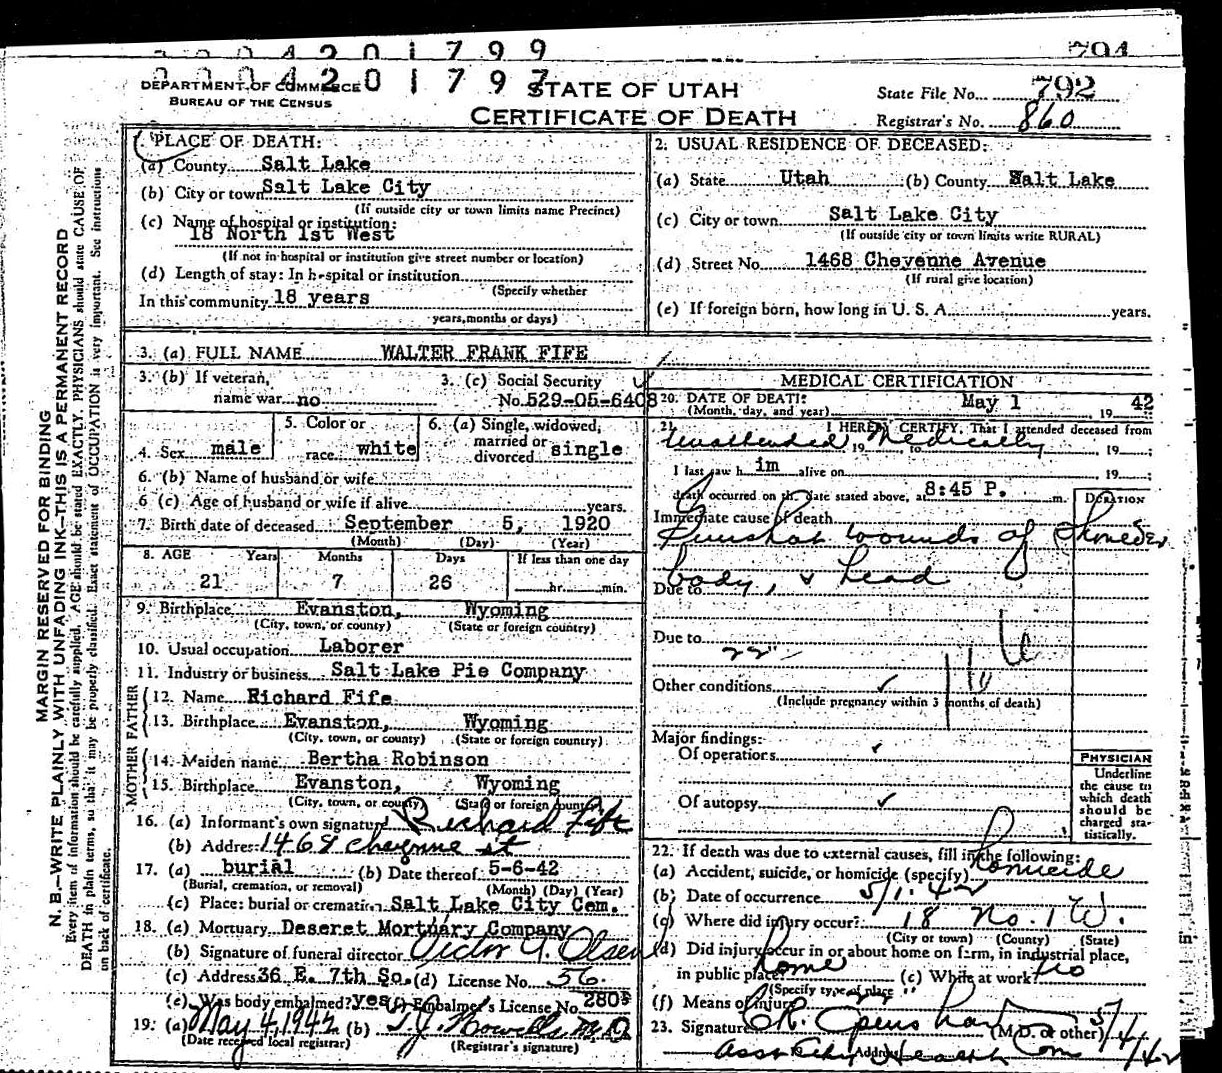 2 0 1 7 9 9
794
4 2 0 1 7 9 7
DEPARTMENT OF COMMERCE
BUREAU OF THE CENSUS
STATE OF UTAH
CERTIFICATE OF DEATH
State File No. 792
Registrar's No. 860
MARGIN RESERVED FOR BINDING
N. B.—WRITE PLAINLY WITH UNFADING INK—THIS IS A PERMANENT RECORD
Every item of information should be carefully supplied. AGE should be stated EXACTLY. PHYSICIANS should state CAUSE OF
DEATH in plain terms, so that it may be properly classified. Exact statement of OCCUPATION is very important. See instructions
on back of certificate.
1. PLACE OF DEATH:
(a) County Salt Lake
(b) City or town Salt Lake City
(If outside city or town limits name Precinct)
(c) Name of hospital or institution:
18 North 1st West
(If not in hospital or institution give street number or location)
(d) Length of stay: In hospital or institution
(Specify whether
In this community 18 years
years, months or days)
2. USUAL RESIDENCE OF DECEASED:
(a) State Utah (b) County Salt Lake
(c) City or town Salt Lake City
(If outside city or town limits write RURAL)
(d) Street No. 1468 Cheyenne Avenue
(If rural give location)
(e) If foreign born, how long in U. S. A. years.
3. (a) FULL NAME WALTER FRANK FIFE
3. (b) If veteran, 3. (c) Social Security
name war no No. 529-05-6408
4. Sex male 5. Color or race white 6. (a) Single, widowed, married or divorced single
6. (b) Name of husband or wife
6 (c) Age of husband or wife if alive years.
7. Birth date of deceased September 5, 1920
(Month) (Day) (Year)
8. AGE Years Months Days If less than one day
21 7 26 hr. min.
9. Birthplace Evanston, Wyoming
(City, town, or county) (State or foreign country)
10. Usual occupation Laborer
11. Industry or business Salt Lake Pie Company
FATHER
12. Name Richard Fife
13. Birthplace Evanston, Wyoming
(City, town, or county) (State or foreign country)
MOTHER
14. Maiden name Bertha Robinson
15. Birthplace Evanston, Wyoming
(City, town, or county) (State or foreign country)
16. (a) Informant's own signature Richard Fife
(b) Address 1468 Cheyenne St
17. (a) burial (b) Date thereof 5-6-42
(Burial, cremation, or removal) (Month) (Day) (Year)
(c) Place: burial or cremation Salt Lake City Cem.
18. (a) Mortuary Deseret Mortuary Company
(b) Signature of funeral director Victor A. Olsen
(c) Address 36 E. 7th So. (d) License No. 56
(e) Was body embalmed? yes (f) Embalmer's License No. 280
19. (a) May 4, 1942 (b) T.J. Howells M.D
(Date received local registrar) (Registrar's signature)
MEDICAL CERTIFICATION
20. DATE OF DEATH:
(Month, day, and year) May 1 19 42
21. I HEREBY CERTIFY, That I attended deceased from
Unattended 19 , to Medically 19 ;
I last saw h im alive on 19 ;
death occurred on the date stated above, at 8:45 P. m.
DURATION
Immediate cause of death
Gunshot wounds of
body, & head
Due to
Due to
Other conditions
(Include pregnancy within 3 months of death)
Major findings:
Of operations
Of autopsy
PHYSICIAN
Underline
the cause to
which death
should be
charged sta-
tistically.
22. If death was due to external causes, fill in the following:
(a) Accident, suicide, or homicide (specify) Homicide
(b) Date of occurrence 5/1-42
(c) Where did injury occur? 18 No. 1 W.
(City or town) (County) (State)
(d) Did injury occur in or about home on farm, in industrial place,
in public place? home (e) While at work? No
(Specify type of place)
(f) Means of injury
23. Signature (M.D. or other) 5/4/42
Address Health Com